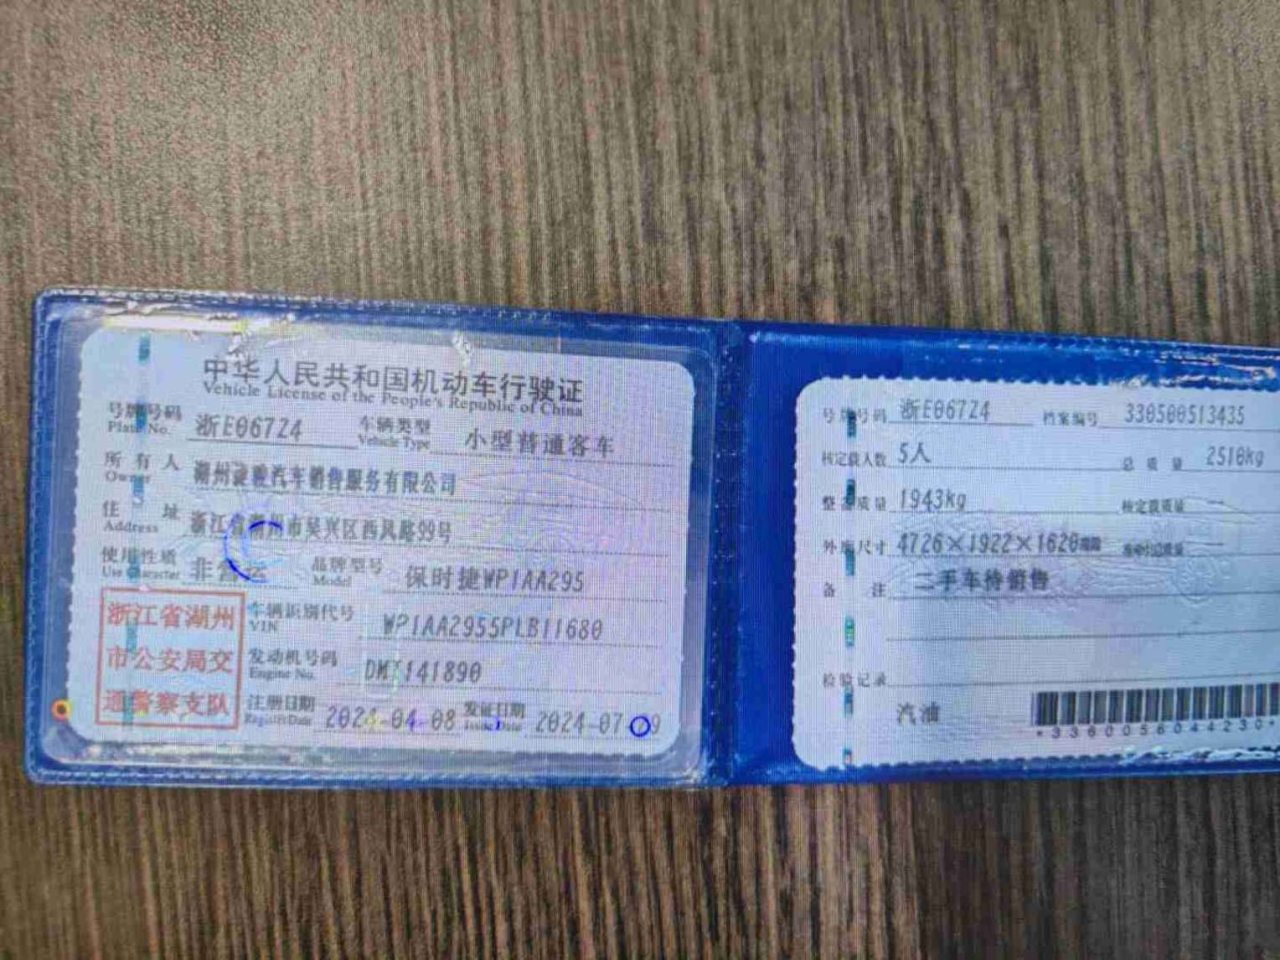 中华人民共和国机动车行驶证
Vehicle License of the People's Republic of China
号牌号码 浙E067Z4 车辆类型 小型普通客车
Plate No. Vehicle Type
所有人 湖州 汽车销售服务有限公司
Owner
住址 浙江省湖州市吴兴区西凤路99号
Address
使用性质 非营运 品牌型号 保时捷WP1AA295
Use Character Model
浙江省湖州
市公安局交
通警察支队
车辆识别代号 WP1AA2955PLB11680
VIN
发动机号码 141890
Engine No.
注册日期 2024-04-08 发证日期 2024-07-
Register Date Issue Date
号牌号码 浙E067Z4 档案编号 330500513435
核定载人数 5人 总质量 2510kg
整备质量 1943kg 核定载质量 —
外廓尺寸 4726×1922×1620 —
备注 二手车待销售
检验记录
汽油
*3360056044230*